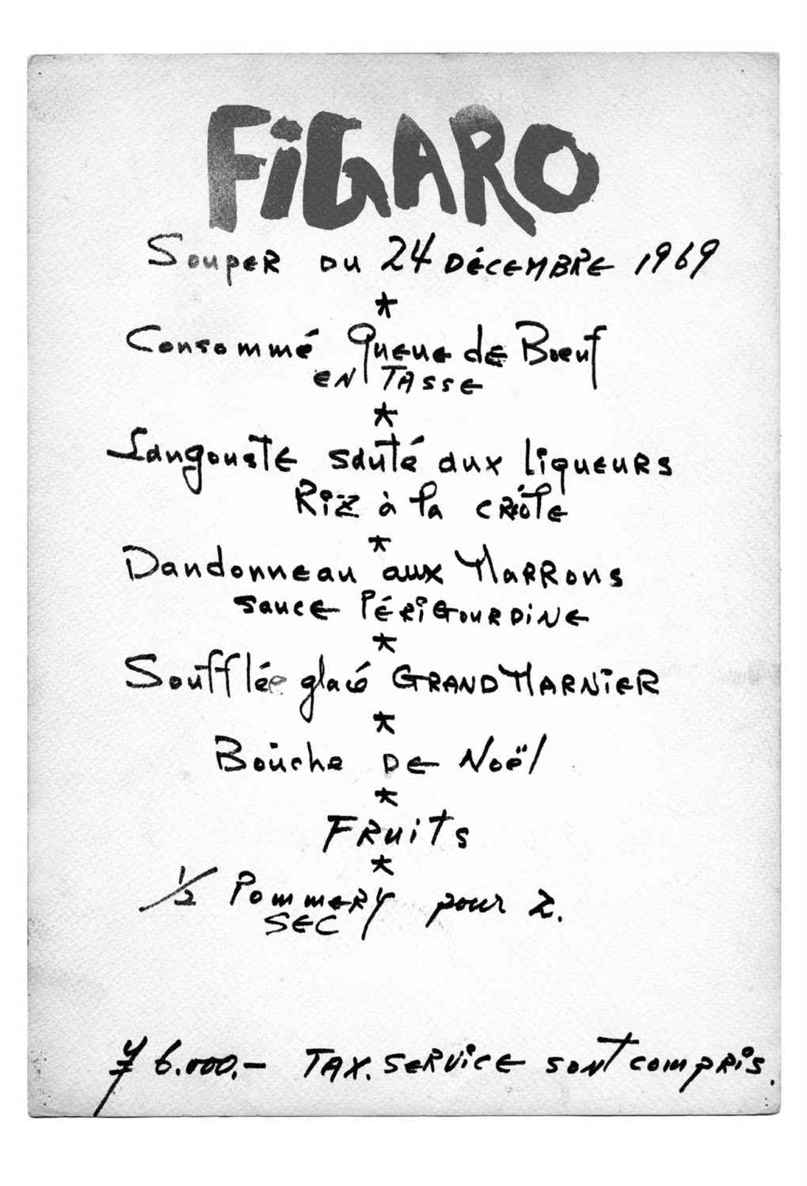 FiGARO
Souper du 24 DÉCEMBRE 1969
*
Consommé Queue de Boeuf
EN TASSE
*
Langouste sauté aux liqueurs
Riz à la créole
*
Dandonneau aux Marrons
sauce PÉRiGOURDiNE
*
Soufflée glacé GRAND MARNiER
*
Boûche DE Noël
*
FRuiTs
*
1/2 Pommery pour 2.
SEC
¥ 6.000.- TAX. SERViCE sont compris.